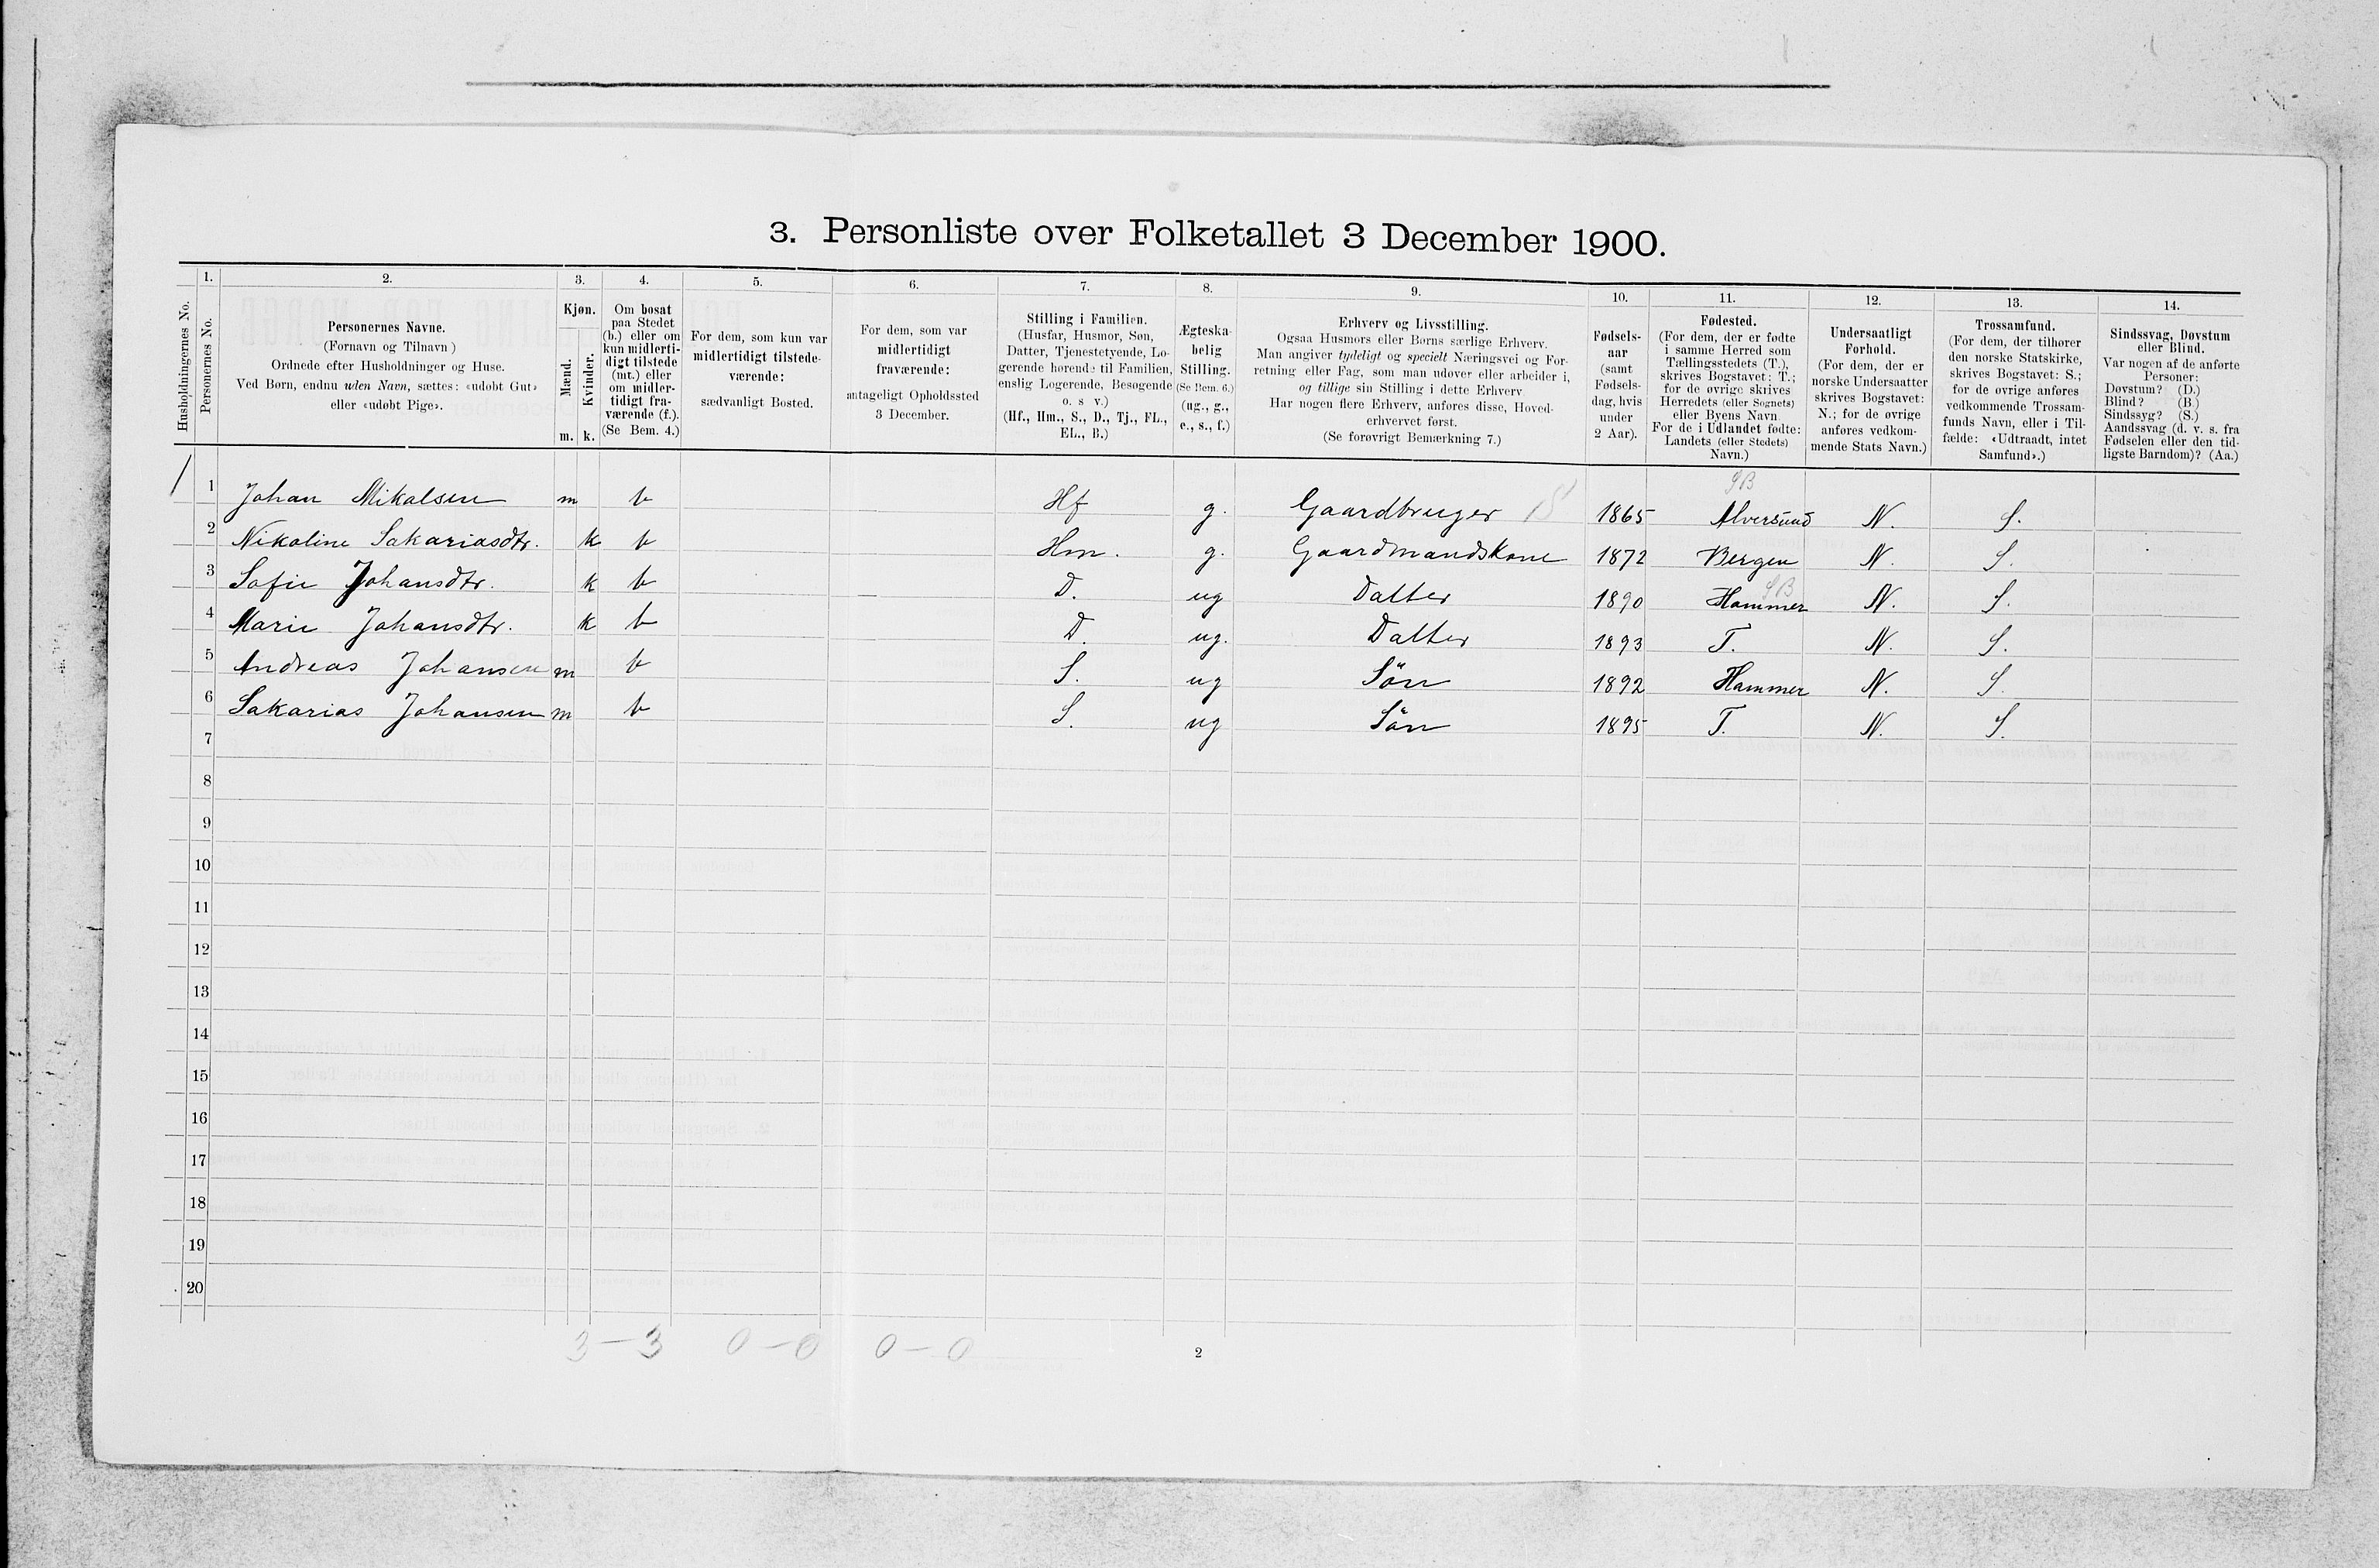 3. Personliste over Folketallet 3 December 1900.
Husholdningernes No.
1. Personernes No.
2. Personernes Navne.
(Fornavn og Tilnavn)
Ordnede efter Husholdninger og Huse.
Ved Børn, endnu uden Navn, sættes: «udøbt Gut»
eller «udøbt Pige».
3. Kjøn.
Mænd. m.
Kvinder. k.
4. Om bosat
paa Stedet
(b.) eller om
kun midlerti-
digt tilstede
(mt.) eller
om midler-
tidigt fra-
værende (f.).
(Se Bem. 4.)
5. For dem, som kun var
midlertidigt tilstede-
værende:
sædvanligt Bosted.
6. For dem, som var
midlertidigt
fraværende:
antageligt Opholdssted
3 December.
7. Stilling i Familien.
(Husfar, Husmor, Søn,
Datter, Tjenestetyende, Lo-
gerende hørende til Familien,
enslig Logerende, Besøgende
o. s v.)
(Hf., Hm., S., D., Tj., FL.,
EL., B.)
8. Ægteska-
belig
Stilling.
(Se Bem. 6.)
(ug., g.,
e., s., f.)
9. Erhverv og Livsstilling.
Ogsaa Husmors eller Børns særlige Erhverv.
Man angiver tydeligt og specielt Næringsvei og For-
retning eller Fag, som man udøver eller arbeider i,
og tillige sin Stilling i dette Erhverv
Har nogen flere Erhverv, anføres disse, Hoved-
erhvervet først.
(Se forøvrigt Bemærkning 7.)
10. Fødsels-
aar
(samt
Fødsels-
dag, hvis
under
2 Aar).
11. Fødested.
(For dem, der er fødte
i samme Herred som
Tællingsstedets (T.),
skrives Bogstavet: T.;
for de øvrige skrives
Herredets (eller Sognets)
eller Byens Navn
For de i Udlandet fødte:
Landets (eller Stedets)
Navn.)
12. Undersaatligt
Forhold.
(For dem, der er
norske Undersaatter
skrives Bogstavet:
N.; for de øvrige
anføres vedkom-
mende Stats Navn.)
13. Trossamfund.
(For dem, der tilhører
den norske Statskirke,
skrives Bogstavet: S.;
for de øvrige anføres
vedkommende Trossam-
funds Navn, eller i Til-
fælde: «Udtraadt, intet
Samfund».)
14. Sindssvag, Døvstum
eller Blind.
Var nogen af de anførte
Personer:
Døvstum? (D.)
Blind? (B.)
Sindssyg? (S.)
Aandssvag (d. v. s. fra
Fødselen eller den tid-
ligste Barndom)? (Aa.)
SB
1 1 Johan Mikalsen m b Hf g. Gaardbruger 1865 Alversund N. S.
2 Nikoline Sakariasdtr. k b Hm. g. Gaardmandskone 1872 Bergen N. S.
SB
3 Sofie Johansdtr. k b D. ug Datter 1890 Hammer N. S.
4 Marie Johansdtr. k b D. ug. Datter 1893 T. N. S.
5 Andreas Johansen m b S. ug Sön 1892 Hammer N. S.
6 Sakarias Johansen m b S. ug Sön 1895 T. N. S.
7
8
9
10
11
12
13
14
15
16
17
18
19
20
3 – 3 0 – 0 0 – 0
2